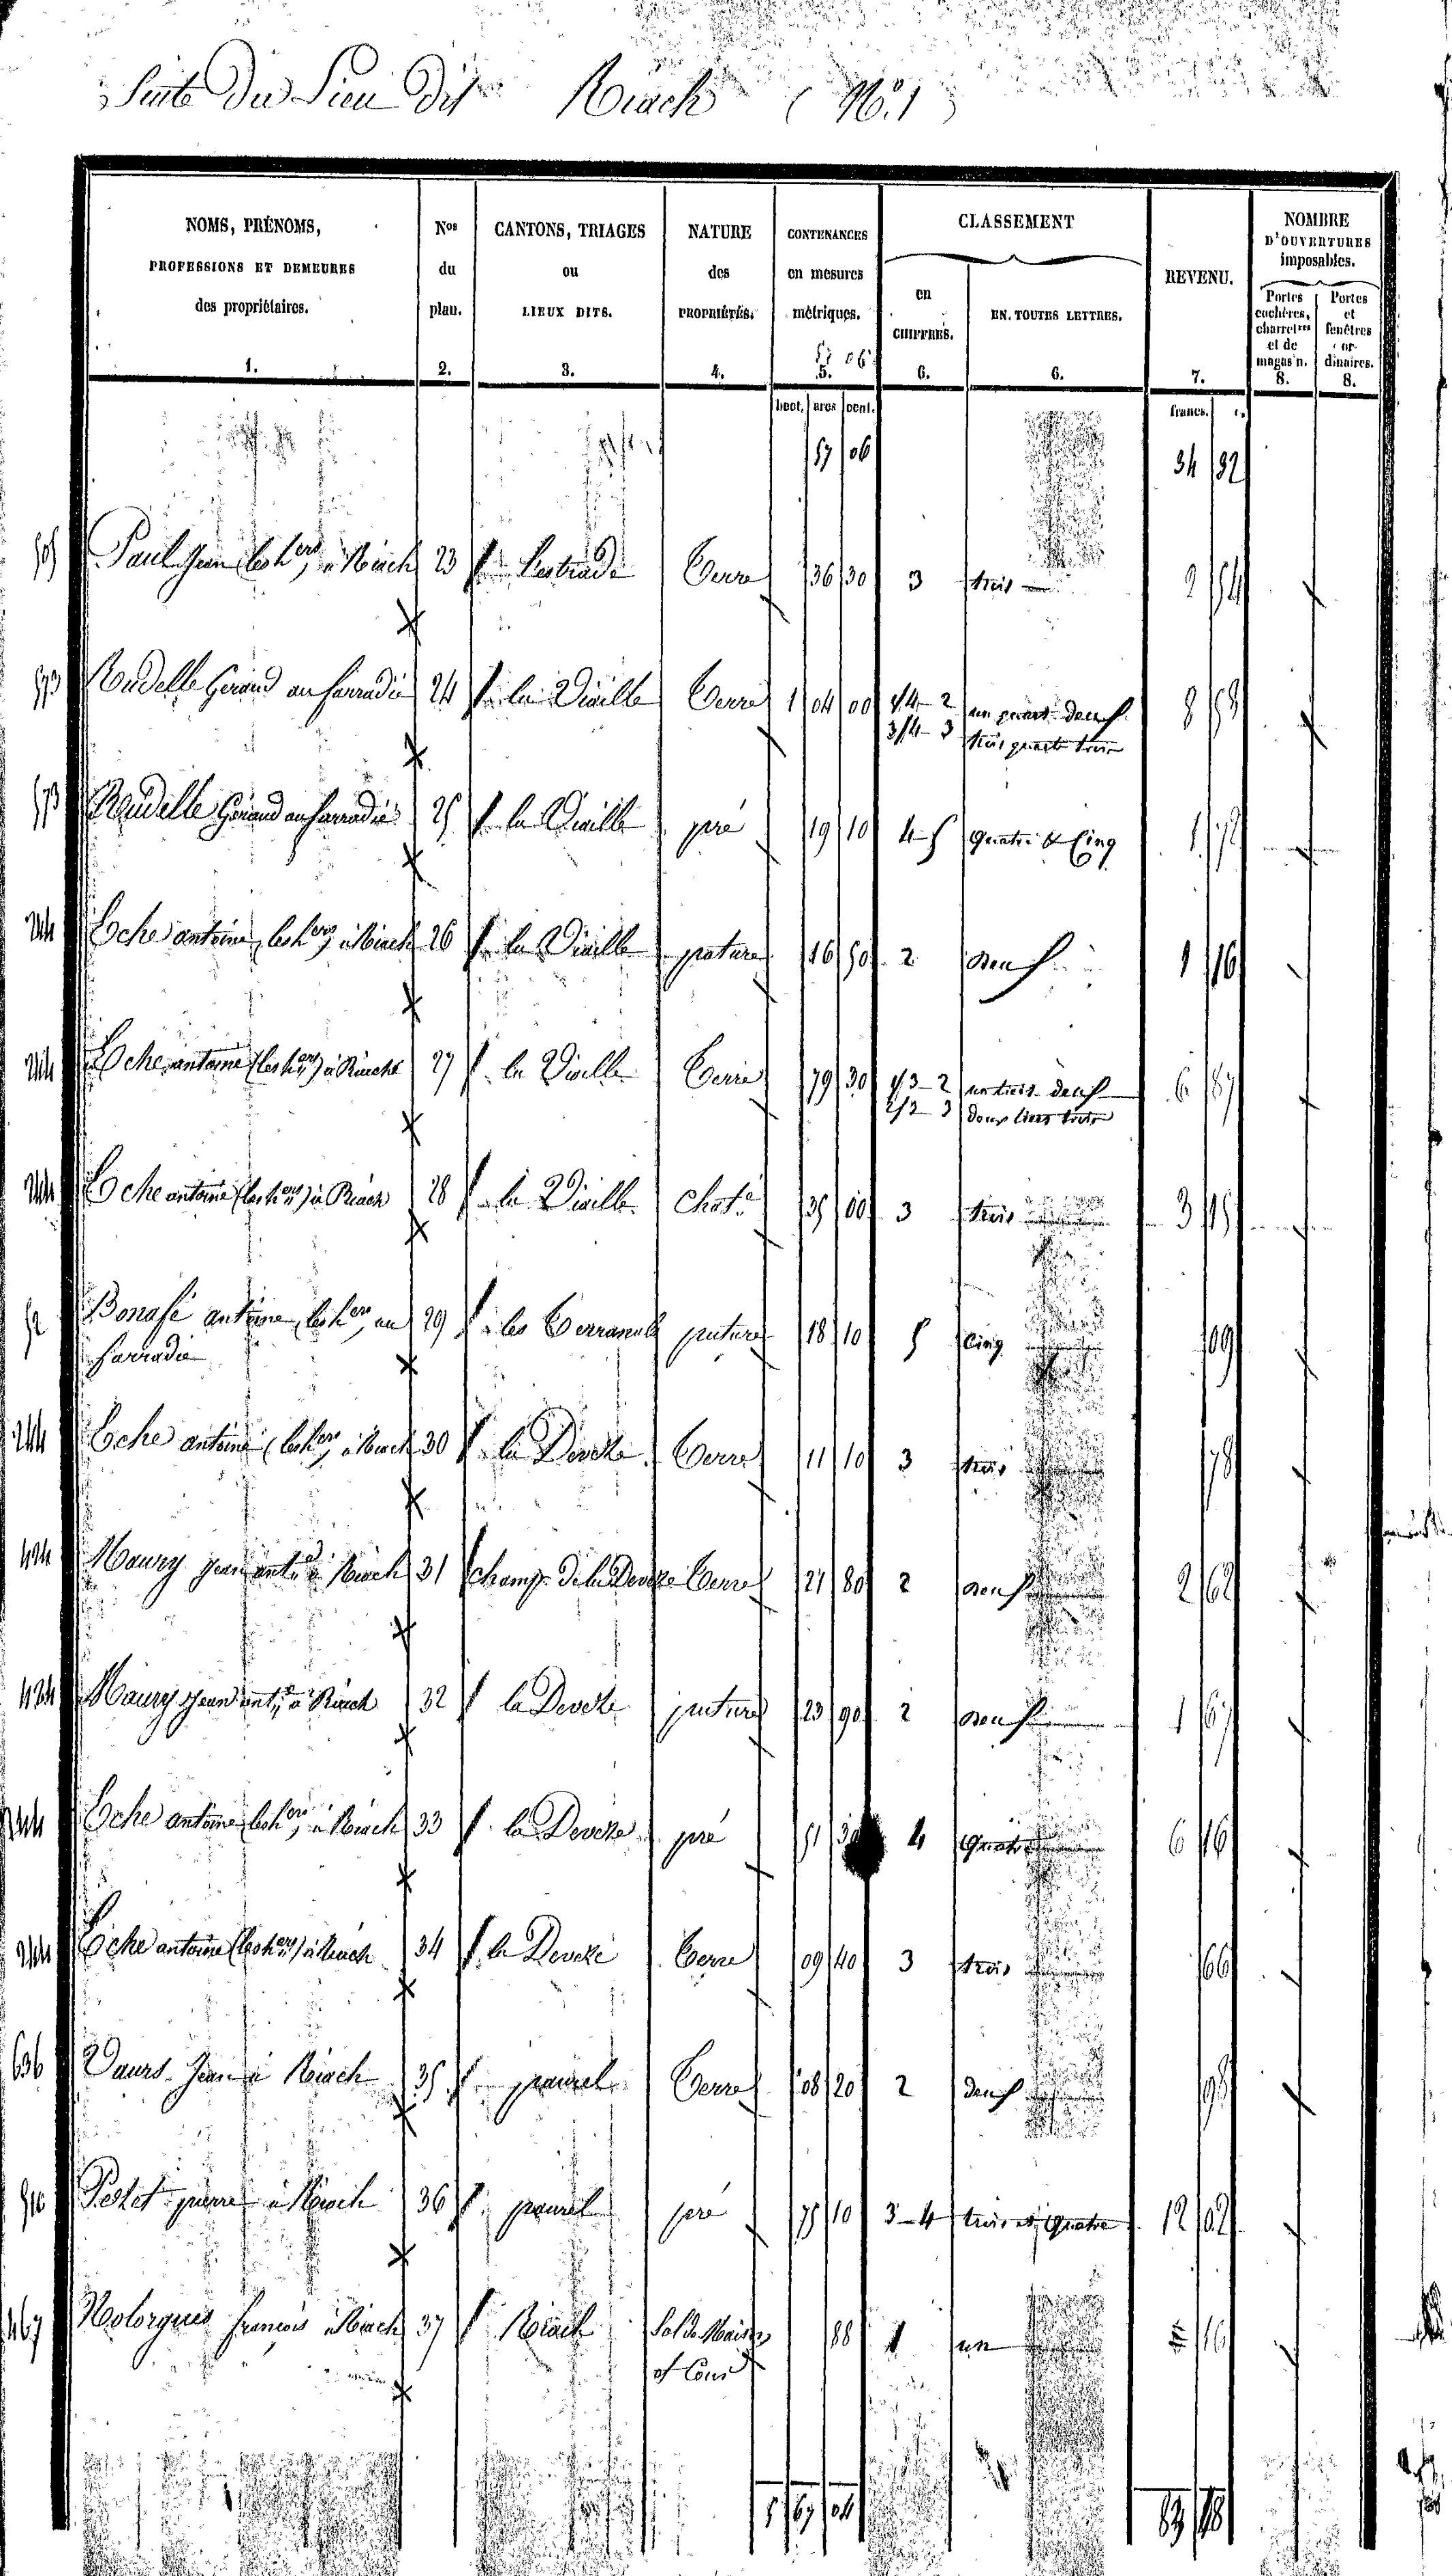 Suite du Lieu dit Riach (No. 1)
NOMS, PRÉNOMS,
PROFESSIONS ET DEMEURES
des propriétaires.
1.
Nos
du
plan.
2.
CANTONS, TRIAGES
ou
LIEUX DITS.
3.
NATURE
des
PROPRIÉTÉS.
4.
CONTENANCES
en mesures
métriques.
5.
CLASSEMENT
en
CHIFFRES.
6.
EN TOUTES LETTRES.
6.
REVENU.
7.
NOMBRE
D'OUVERTURES
imposables.
Portes
cochères,
charretres
et de
magas'n.
8.
Portes
et
fenêtres
or-
dinaires.
8.
hect. ares cent. francs. c.
57 06 34 92
Paul Jean (les hers) à Riach 23 Terre 36 30 3 trois 2 54
573 Rudelle Géraud au Farradie 24 la Vieille Terre 1 04 00 1/4-2 un quart deux
3/4-3 trois quarts trois
573 Rudelle Géraud au Farradie 25 la Vieille pré 19 10 4-5 Quatre & Cinq 1 72
244 Eche antoine (les hers) à Riach 26 la Vieille pature 16 50 2 deux 1 16
244 Eche antoine (les hers) à Riach 27 la Vieille Terre 79 30 1/3-2 un tiers deux 6 87
3 deux tiers trois
244 Eche antoine (les hers) à Riach 28 la Vieille 35 00 3 trois 3 15
52 Bonafé antoine (les hers) au 29 les pature 18 10 5 cinq 09
Farradie
244 Eche antoine (les hers) à Riach 30 la Deveze Terre 11 10 3 trois 78
434 Maury Jean ant. à Riach 31 champ de la Deveze Terre 21 80 2 deux 2 62
434 Maury Jean ant. à Riach 32 la Deveze pature 23 90 2 deux 1 67
244 Eche antoine (les hers) à Riach 33 la Deveze pré 51 30 4 Quatre 6 16
244 Eche antoine (les hers) à Riach 34 la Deveze Terre 09 40 3 trois 66
636 Vaurs Jean à Riach 35 Terre 08 20 2 deux 98
Pestet pierre à Riach 36 pré 75 10 3-4 trois et Quatre 12 02
467 francois à Riach 37 Riach Sol de Maison 88 1 un 16
et Cour
5 67 04